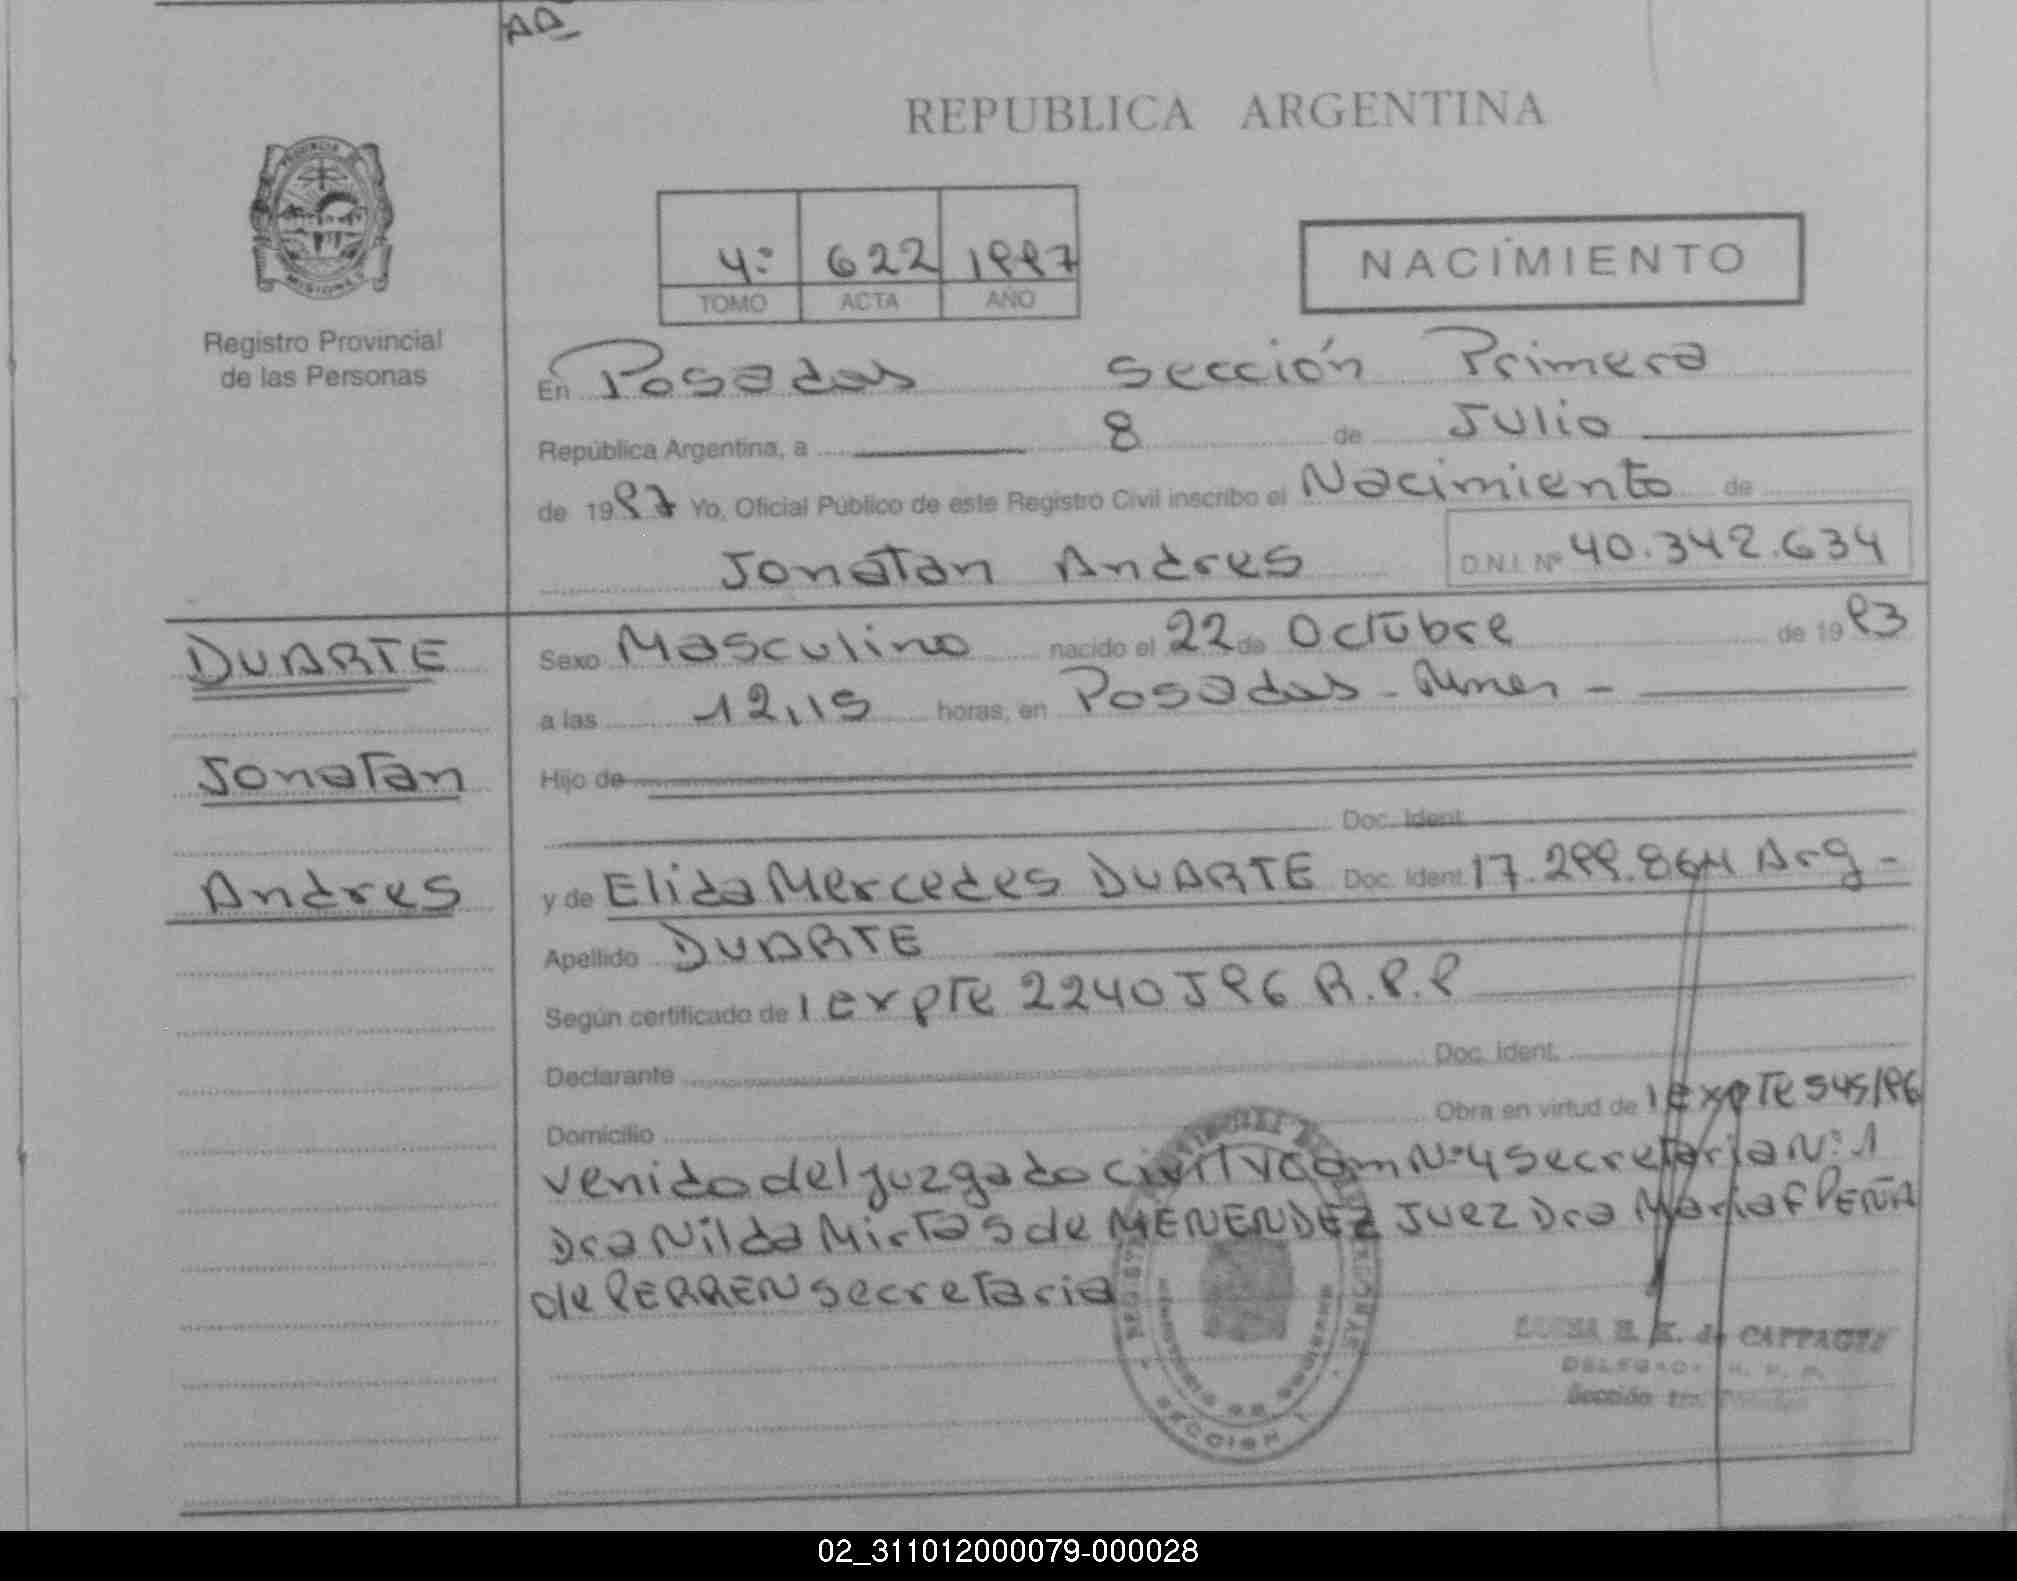 AD
REPUBLICA ARGENTINA
PROVINCIA DE
MISIONES
4: 622 1997
TOMO ACTA AÑO
NACIMIENTO
Registro Provincial
de las Personas
En Posadas Sección Primera
República Argentina, a 8 de Julio
de 1997 Yo, Oficial Público de este Registro Civil inscribo el Nacimiento de
Jonatan Andres D.N.I. Nº 40.342.634
DUARTE
Sexo Masculino nacido el 22 de Octubre de 1993
a las 12,15 horas, en Posadas -
Jonatan
Hijo de
Doc. Ident.
Andres
y de Elida Mercedes DUARTE Doc. Ident. 17.299.864 Arg -
Apellido DUARTE
Según certificado de 1 expte 2240 J96 R.P.P
Declarante Doc. Ident.
Domicilio Obra en virtud de 1 expte 545/96
venido del juzgado civil y com Nº 4 secretaria Nº 1
Dra Nilda Mirta S de MENENDEZ Juez Dra Maria F PEÑA
de PERREN secretaria
SECCION 1
de CAPPAGLI
DELEGADO R. P. P.
Sección 1ra.
02_311012000079-000028